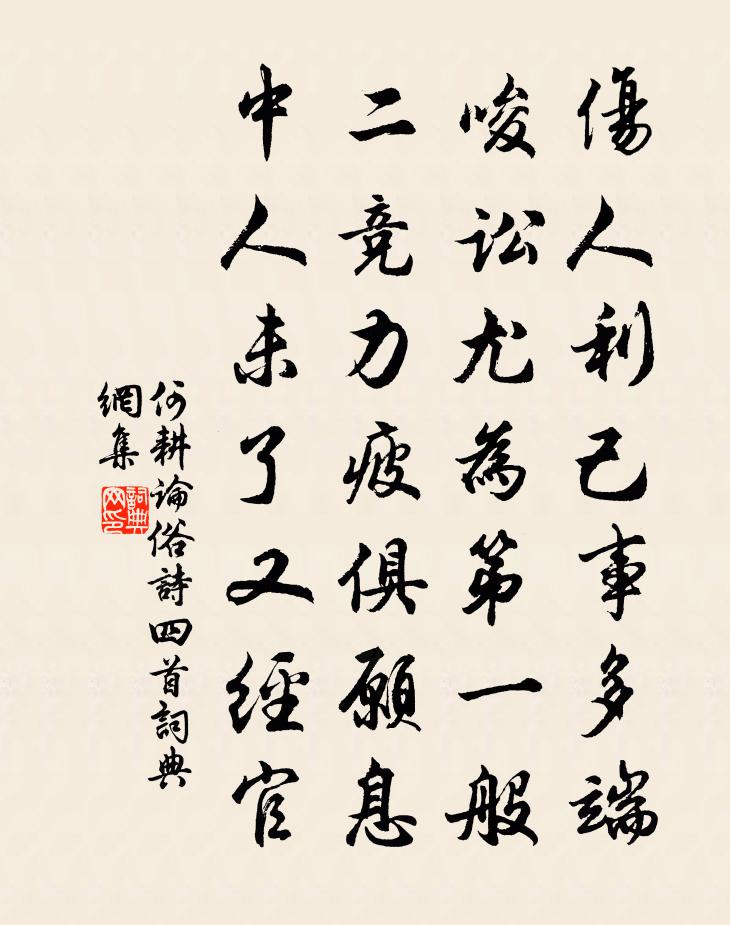 傷人利己事多端
唆訟尤為第一般
二竞力疲俱願息
中人未了又經官
何耕論俗詩四首詞典
網集
詞典
网印